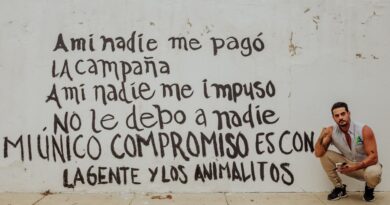 A mi nadie me pagó
LA CAMPAÑA
A mi nadie me impuso
No le debo a nadie
MI ÚNICO COMPROMISO ES CON
LA GENTE Y LOS ANIMALITOS